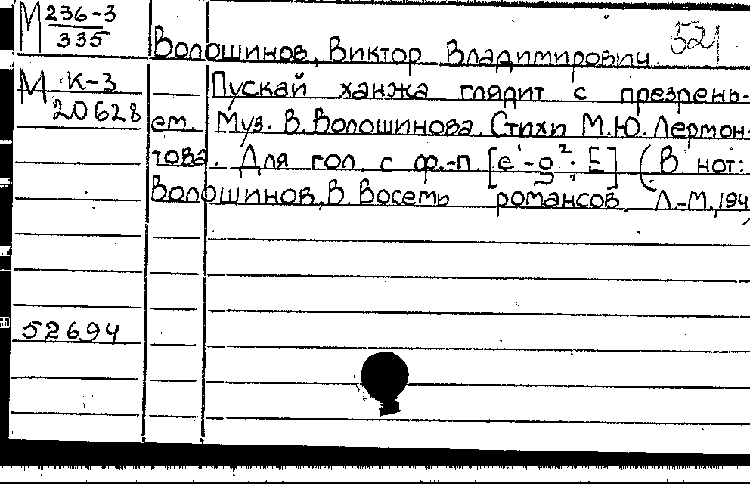 М 236-3
335
Волошинов, Виктор Владимирович 521
М К-3
20628
Пускай ханжа глядит с презрень-
ем. Муз. В. Волошинова. Стихи М.Ю. Лермон-
това. Для гол. с ф.-п. [e¹-g²; E] (В нот:
Волошинов, В. Восемь романсов. Л.-М., 194
52694